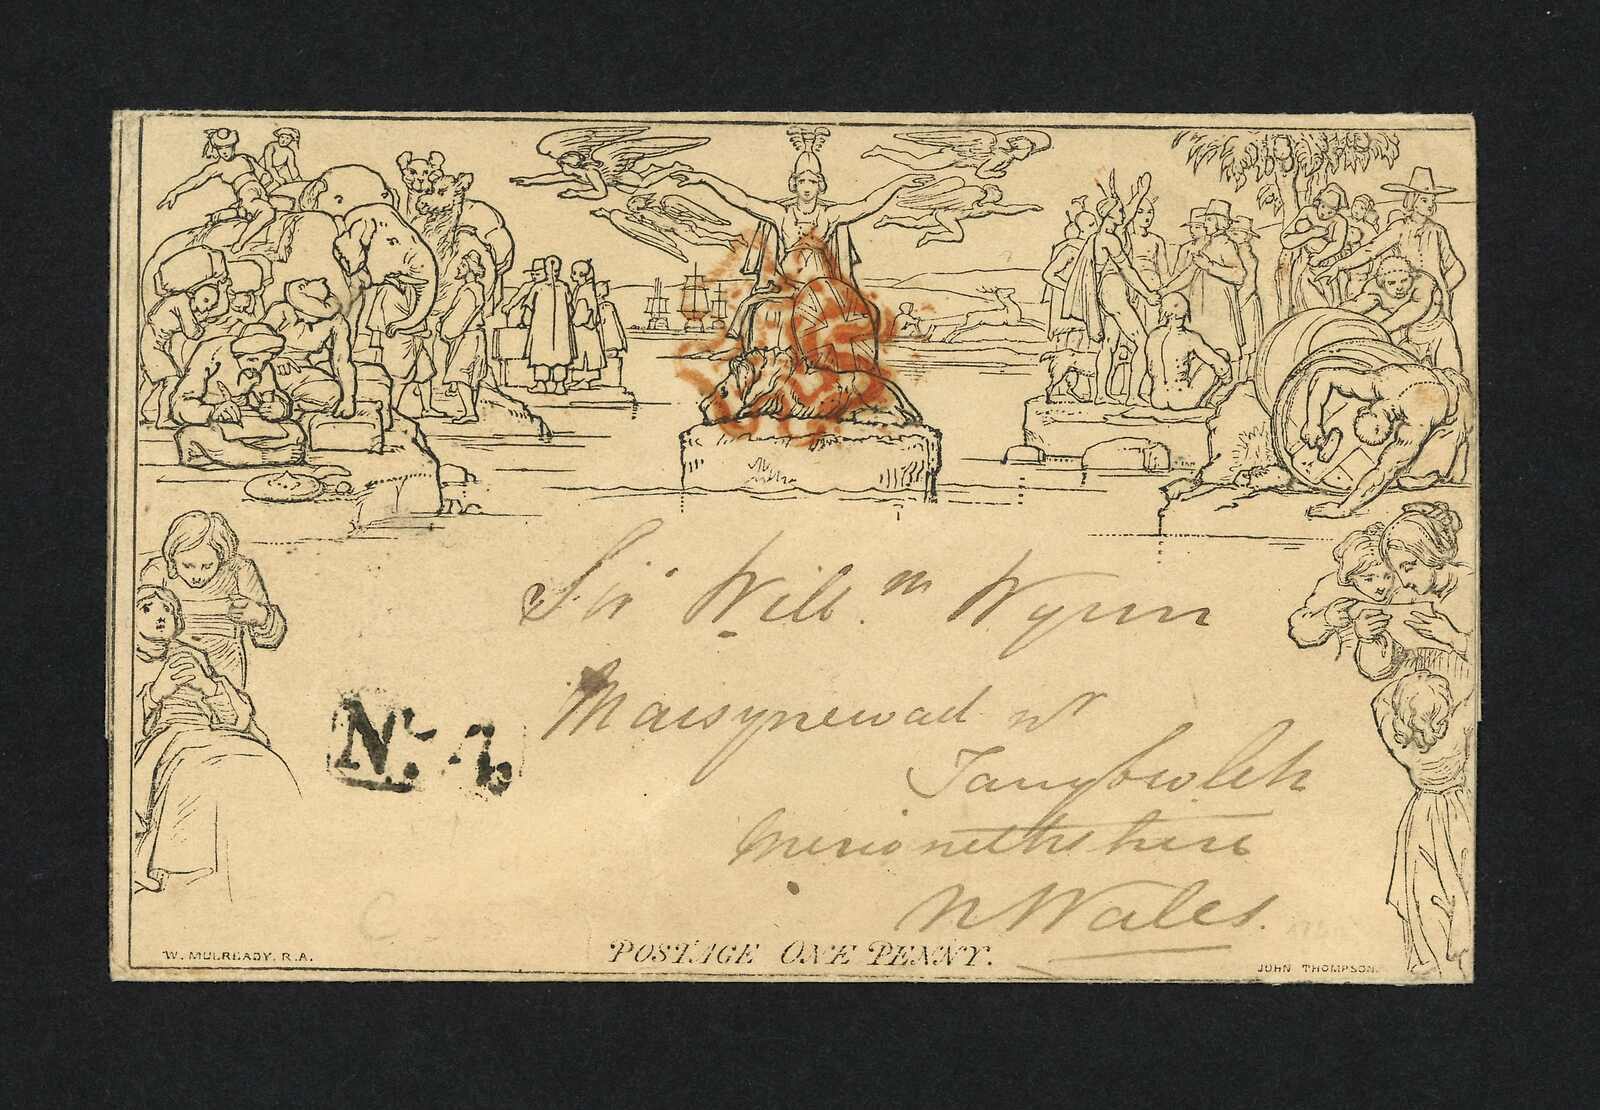 Sir Willm Wynn
Maesynewad nr
Tanybwlch
Merionethshire
N Wales.
No. 4
W. MULREADY. R.A.
POSTAGE ONE PENNY.
JOHN THOMPSON.